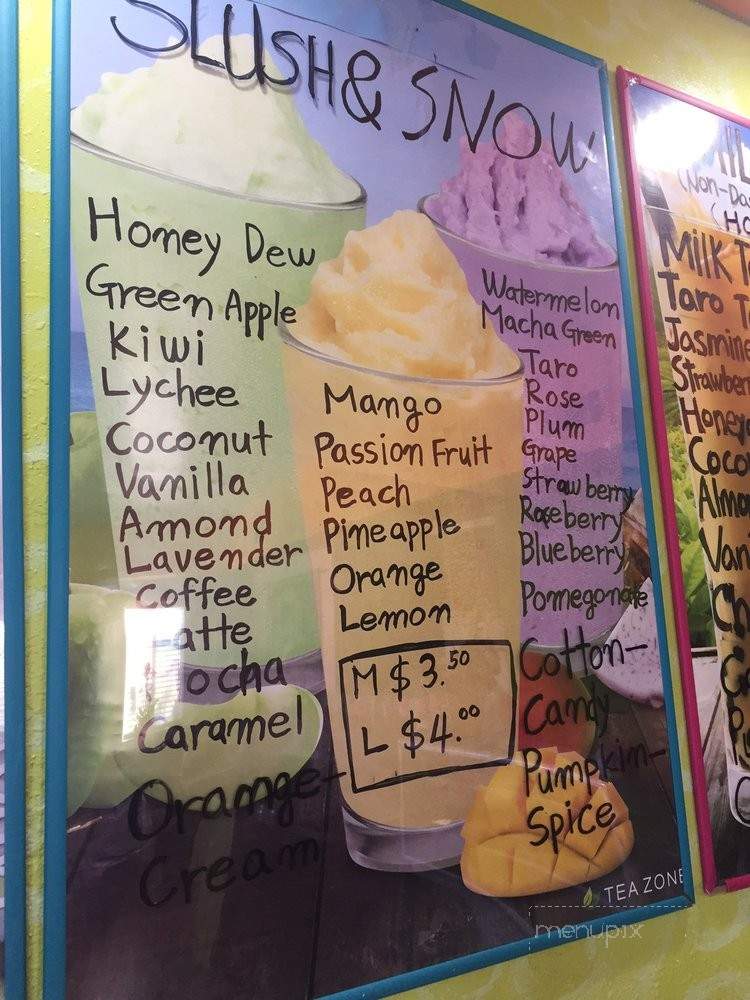 SLUSH & SNOW
Honey Dew
Green Apple
Kiwi
Lychee
Coconut
Vanilla
Amond
Lavender
Coffee
atte
ocha
Caramel
Orange-
Cream
Mango
Passion Fruit
Peach
Pineapple
Orange
Lemon
M $3.50
L $4.00
Watermelon
Macha Green
Taro
Rose
Plum
Grape
Strawberry
Raseberry
Blueberry
Pomegonate
Cotton-
Candy
Pumpkim-
Spice
TEA ZONE
menupix
(Non-Da
(HO
Milk T
Taro T
Jasmine
Strawber
Honey
Coco
Almo
Van
Ch